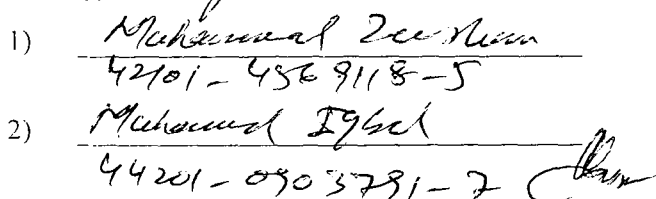 1) Muhammad Zeeshan
42101-4569118-5
2) Muhammad Iqbal
44201-0903791-7